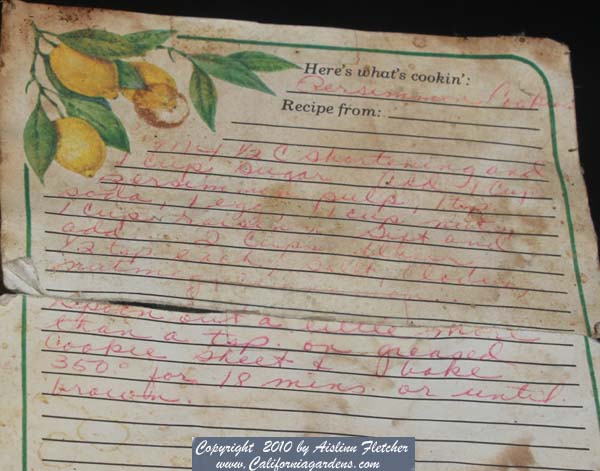 Here's what's cookin':
Persimmon Cookies
Recipe from:
Mix ½ C shortening and
1 cup sugar. Add 1 cup
persimmon pulp, 1 tsp
soda, 1 egg, 1 cup nuts,
1 cup raisins. Sift and
add 2 cups flour,
½ tsp each salt, cloves,
nutmeg
Spoon out a little more
than a tsp on greased
cookie sheet & bake
350° for 18 mins or until
brown.
Copyright 2010 by Aislinn Fletcher
www.Californiagardens.com